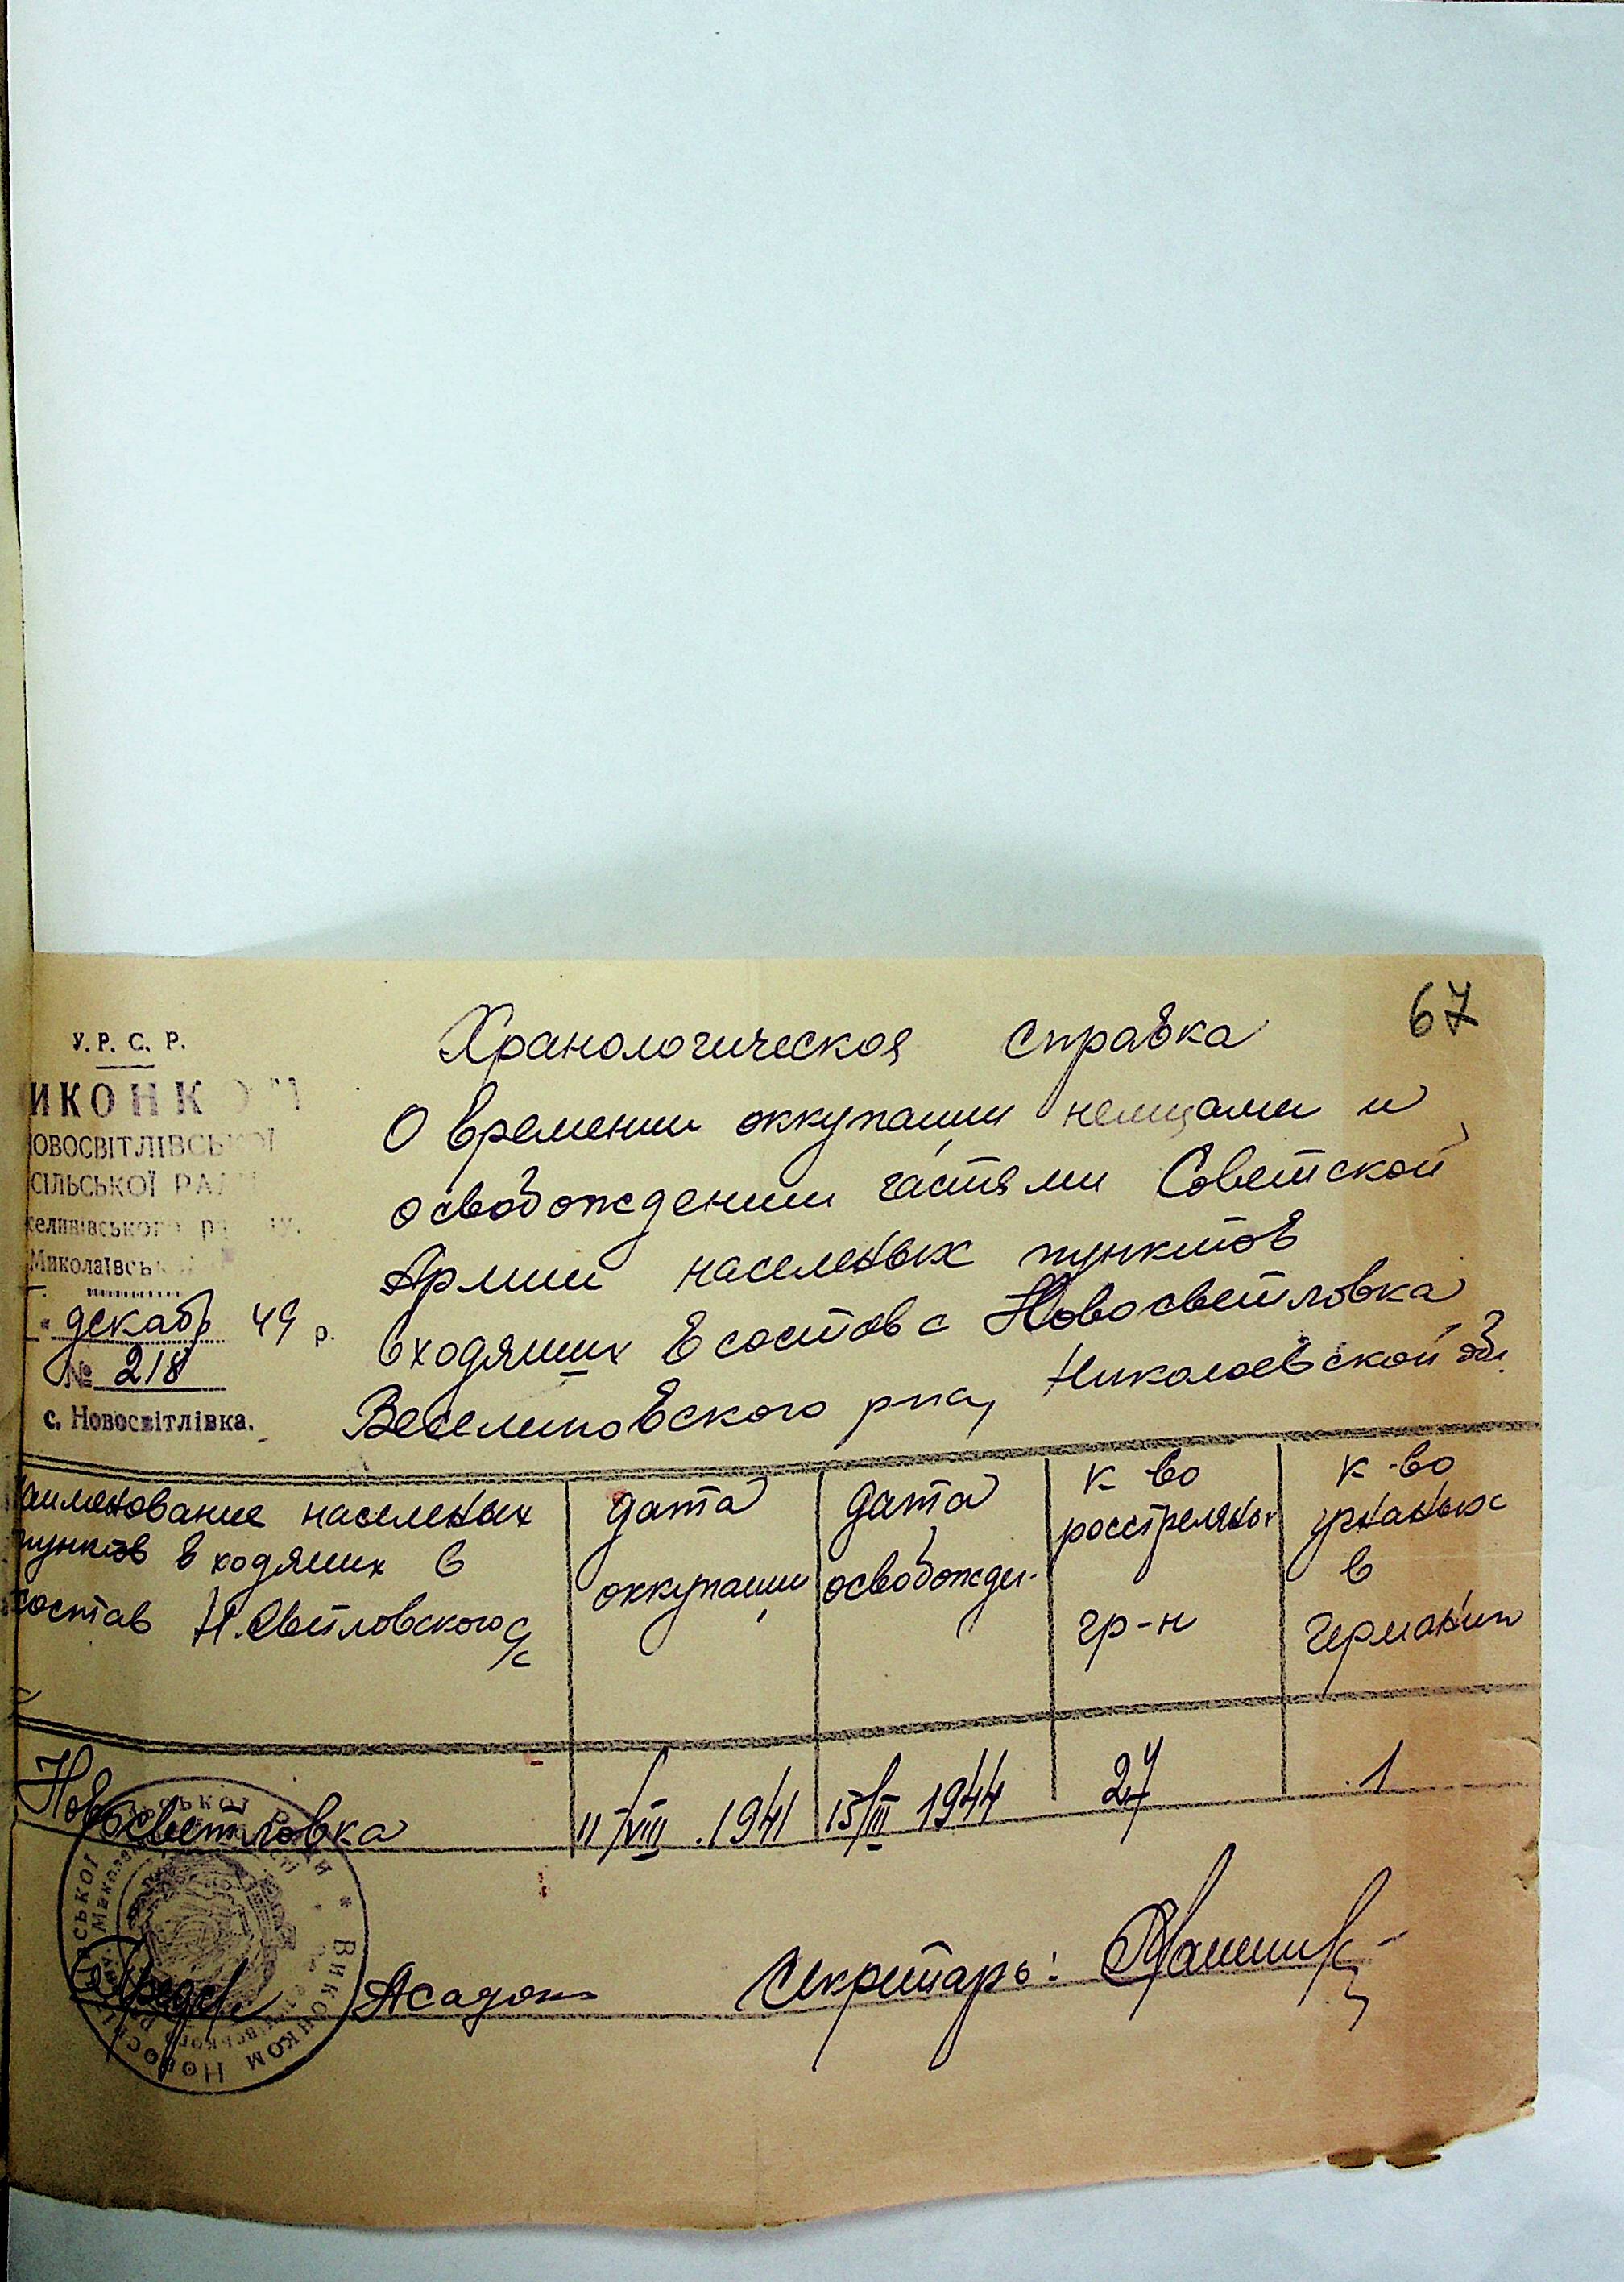 67
У. Р. С. Р.
ИКОНК
ОВОСВІТЛІВСЬКОЇ
СІЛЬСЬКОЇ РА
селинівського
Миколаївськ
декабр 49 р.
№ 218
с. Новосвітлівка.
Хранологическая справка
О времении оккупации немцами и
освобождении частями Советской
Армии населеных пунктов
входяших в состав с Новосветловка
Веселиновского рна, Николаевской обл.
аименование населеных
пунктов входяших в
состав Н.Светловского с/с
дата
оккупации
дата
освобожден.
к-во
росстреляных
гр-н
к-во
угнаных
в
Германию
Новосветловка
11/VIII .1941
15/III 1944
27
1
Предс.
Секретарь:
ВИКОНКОМ